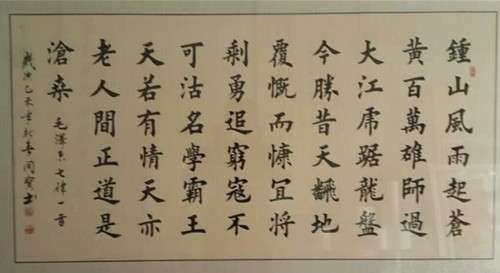 鍾山風雨起蒼
黃百萬雄師過
大江虎踞龍盤
今勝昔天飜地
覆慨而慷宜將
剩勇追窮寇不
可沽名學霸王
天若有情天亦
老人間正道是
滄桒 毛澤東七律一首
歲 乙未 書